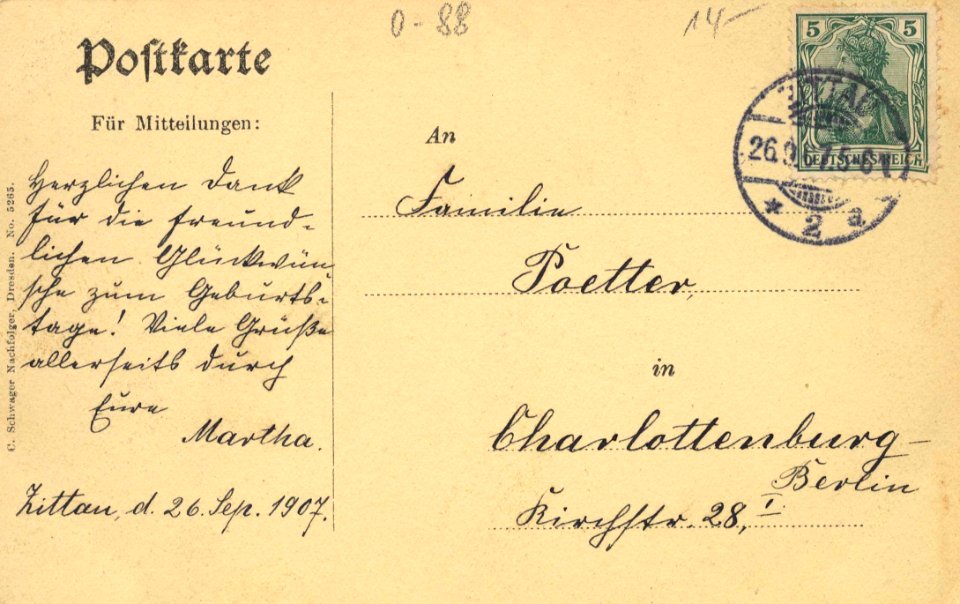 0-88
14-
Postkarte
Für Mitteilungen:
Herzlichen Dank
für die freund-
lichen Glückwün
sche zum Geburts-
tage! Viele Grüße
allerseits durch
Eure
Martha.
Zittau, d. 26. Sep. 1907.
C. Schwager Nachfolger, Dresden. No. 5265.
An
Familie
Poetter,
in
Charlottenburg-
Berlin
Kirchstr. 28, I
5 5
DEUTSCHES REICH
ZITTAU
26.9. 7.5-6
* 2 a